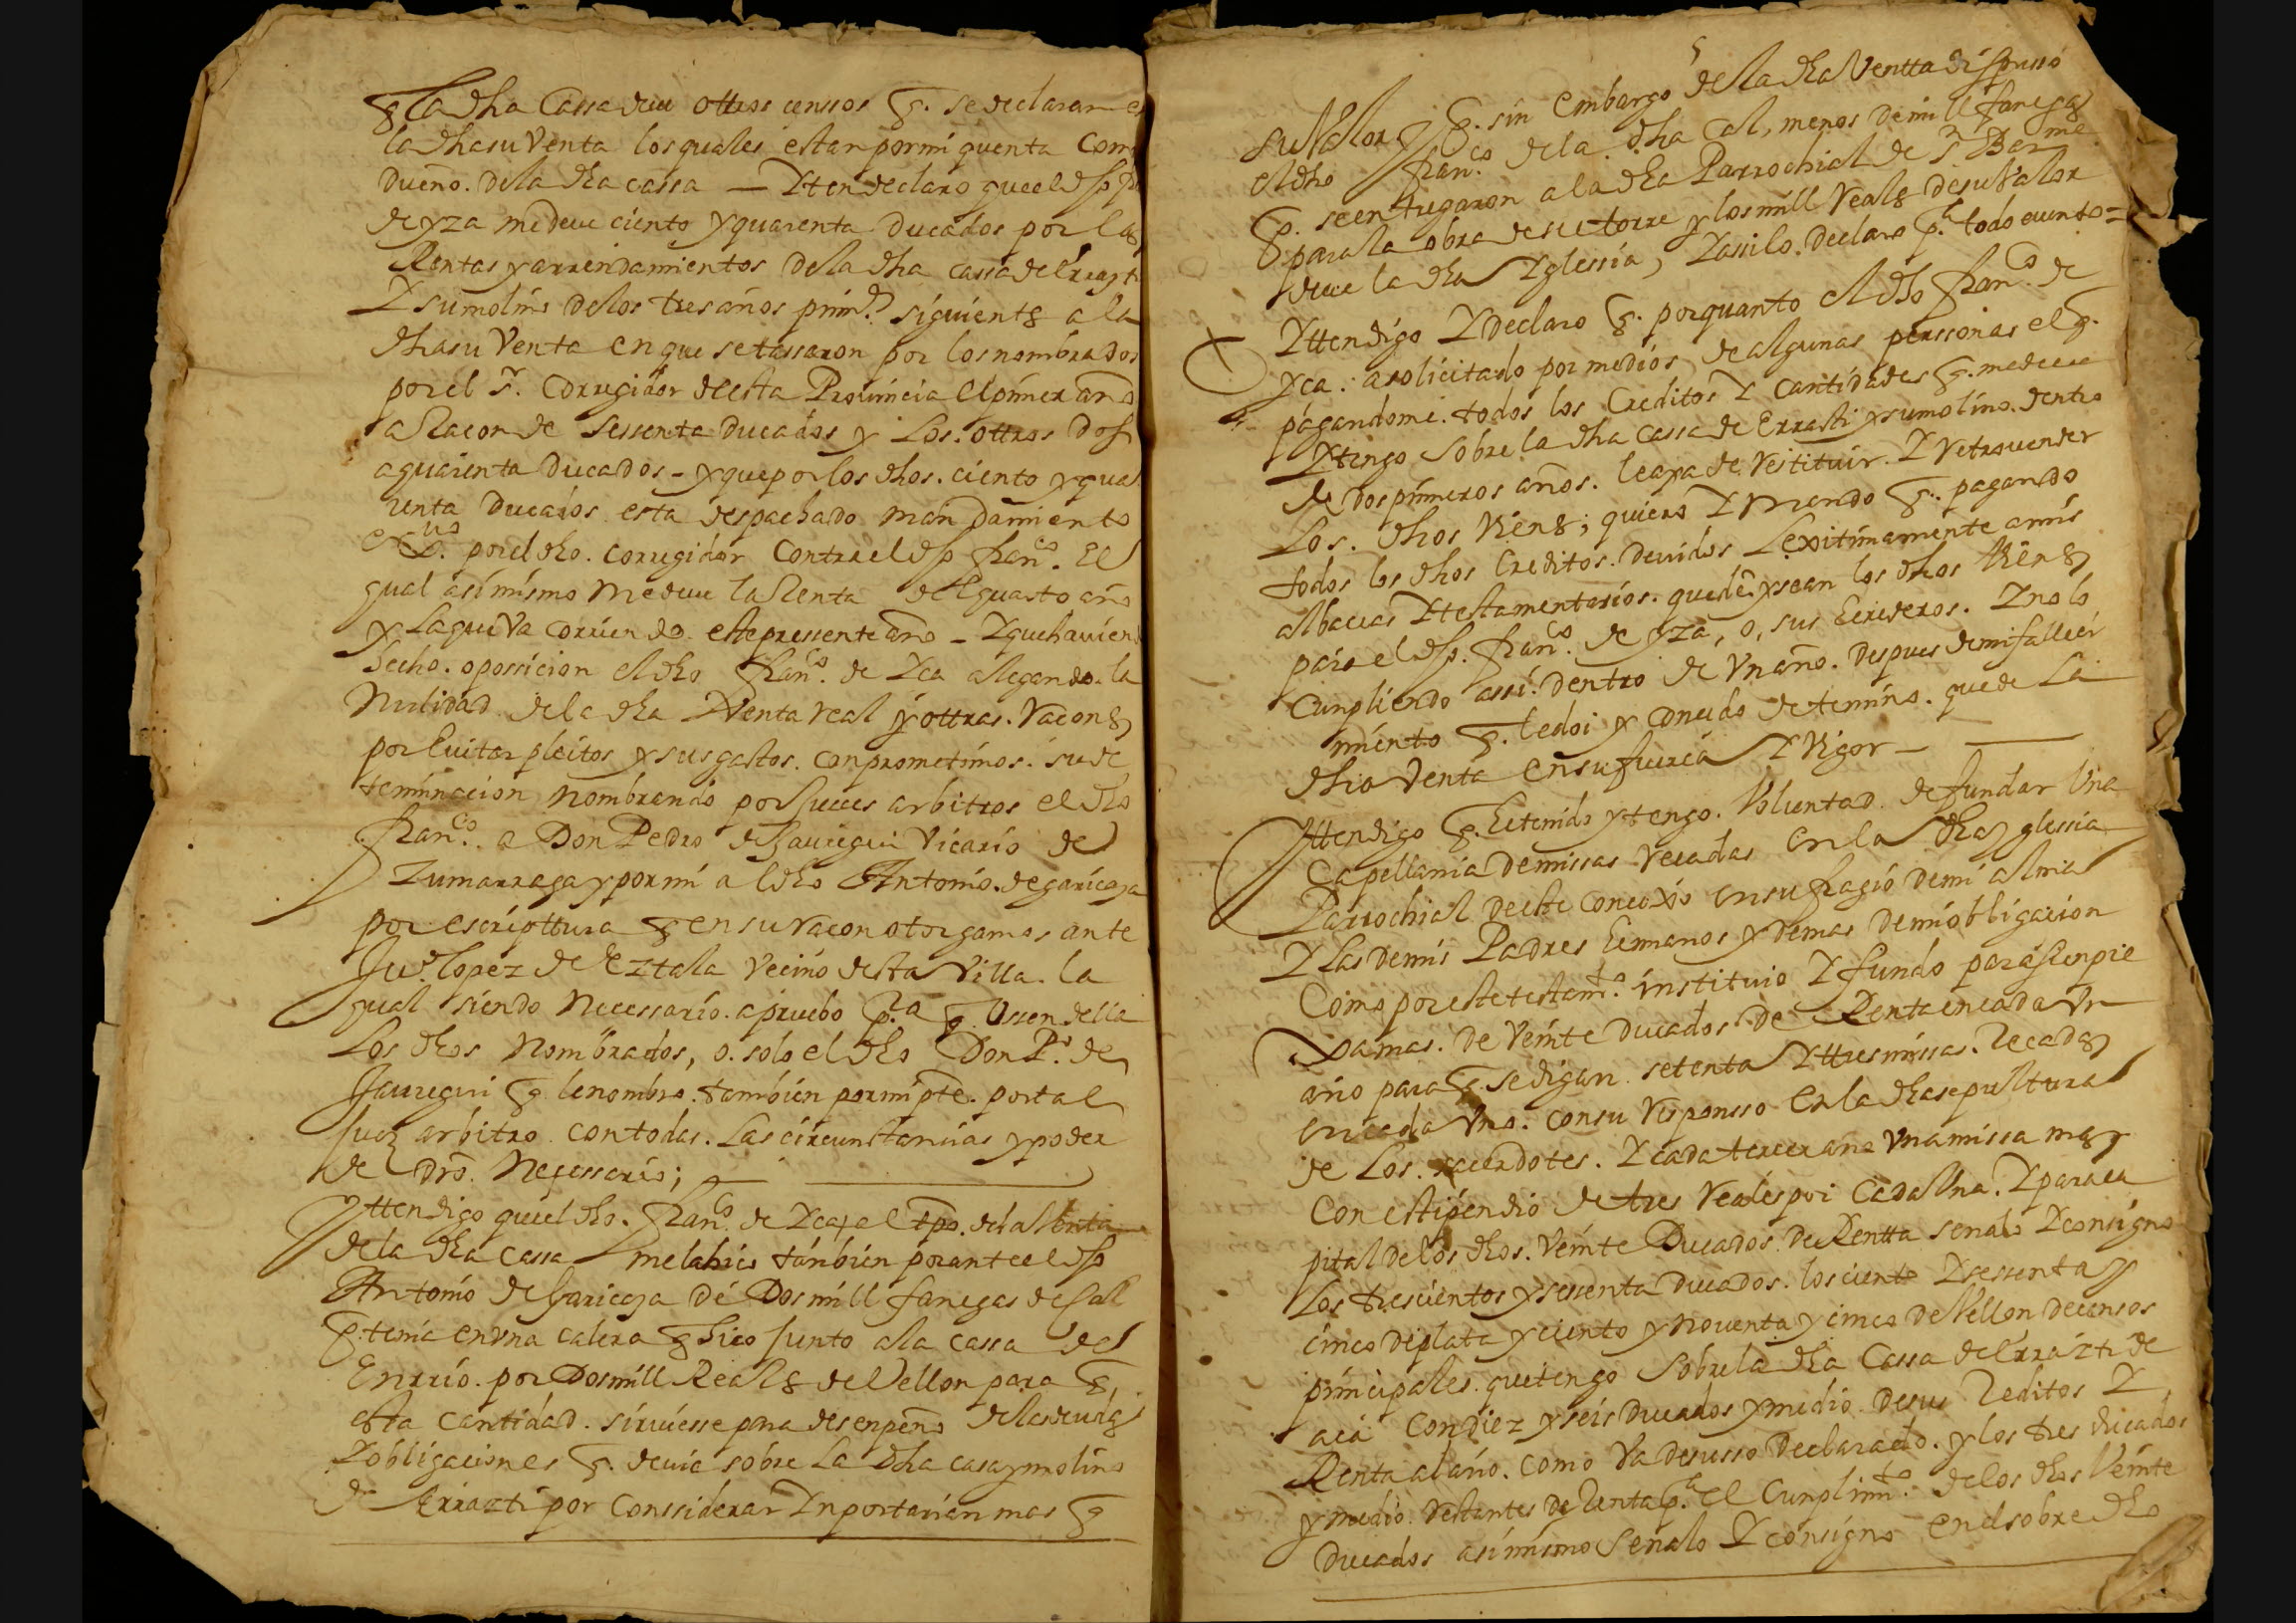 q la dha Cassa deue ottros censsos q. se declararan e
la dha su Venta los quales estan por mi quenta Com
dueño. de la dha cassa — Yten declaro que el dho
de yza me deue ciento y quarenta Ducados por las
Rentas y arrendamientos de la dha cassa de Erraz
Y su molino de los tres años prim.os siguientes a la
dha su Venta en que se tassaron por los nombrados
por el s.r Corregidor de esta Prouincia el primer año
a Racon de sessenta Ducados y Los. ottros Dos
a quarenta Ducados - y que por los dhos. ciento y qua
renta Ducados esta despachado mandamiento
por el dho. corregidor Contra el dho fran.co El
qual asi mismo me deue la Renta del quarto año
y La que Va corriendo este pressente año - Y que hauien
hecho. opossicion el dho fran.co de Yca allegando. la
Nulidad de la dha Venta real y ottras. Racones
por Euitar pleitos y sus gastos. conprometimos. su de
terminacion nombrando por Jueces arbitros el dho
fran.co a Don Pedro de Jauregui Vicario de
Zumarraga y por mi al dho Antonio. de garicoza
por escripttura q en su racon otorgamos ante
Ju.o lopez de Eztala Vecino desta Villa. la
qual siendo Necessario. apruebo p.ra q Ussen della
Los dhos Nombrados, o. solo el dho Don P.o de
Jauregui q le nombro. tambien por mi pte. por tal
Juez arbitro. con todas. Las circunstancias y poder
de Dro. Necessario;
Ytten digo que el dho. fran.co de Yca, al tpo. de la Venta
de la dha cassa me la hico tanbien por ante el dho
Antonio de Garicoza de Dos mill fanegas de Cal
q. tenia en vna calera q hico Junto a la cassa de
Enrrio. por Dos mill Reales de Vellon para q
esta cantidad. siruiesse para desenpeño de las deudas
Y obligaciones q. deuia sobre La Dha casa y molino
de Errazti por Conssiderar Ynportarian mas q
su Valor y q. sin embargo de la dha Ventta dispusso
el dho fran.co de la dha Cal, menos de mill fanegas
q. se entregaron a la dha Parrochial de s.n Bar.me
para la obra de su torre y los mill Reales de su Valor
deue la dha Yglessia, Y assi lo. Declaro p.a todo euento =
Ytten digo Y Declaro q. por quanto el dho fran.co de
yca. a solicitado por medios de algunas perssonas el q.
pagandome. todos los Creditos Y Cantidades q. me deue
Y tengo sobre la dha cassa de Errasti y su molino. dentro
de dos primeros años. le aya de restituir. Y Retrouender
Los. dhos Vienes; quiero Y mando q. pagando
todos los dhos Creditos. deuidos Lexitimamente a mis
albaceas Y testamentarios. queden y sean los dhos Vienes
para el dho. fran.co de yza, o, sus Erederos. Y no lo
Cunpliendo assi. dentro de Vn año. despues de mi falleci
miento q. le doi y concedo de termino. quede La
dha Venta en su fuerça Y Vigor —
Ytten digo q. E tenido y tengo. Voluntad. de fundar Vna
Capellania de missas reçadas en la dha Yglessia
Parrochial deste conçexo en sufragio de mi alma
Y Las de mis Padres Ermanos y demas de mi obligacion
Como por este testam.to instituio Y fundo para sienpre
Jamas. de Veinte Ducados de Renta en cada Vn
año para q se digan. setenta Y ttres missas. reçadas
en cada Vno. con su Responsso en la dha sepultura
de Los. sacerdotes. Y cada tercer año Vna missa mas
Con estipendio de tres reales por cada Vna. Y para ca
pital de los dhos. Veinte Ducados. de Rentta señalo Y consigno
Los trescientos y sessenta Ducados. los ciento Y sessenta y
cinco de plata y ciento y noventa y cinco de Vellon de censos
principales. que tengo Sobre la dha Cassa de Errazti de
aca Con diez y seis Ducados y medio de sus reditos Y
Renta al año. como Va de susso Declarado. y los tres ducados
y medio. restantes de renta p.a el Cunplim.to de los dhos Veinte
Ducados asi mismo Señalo Y consigno en el sobre dho